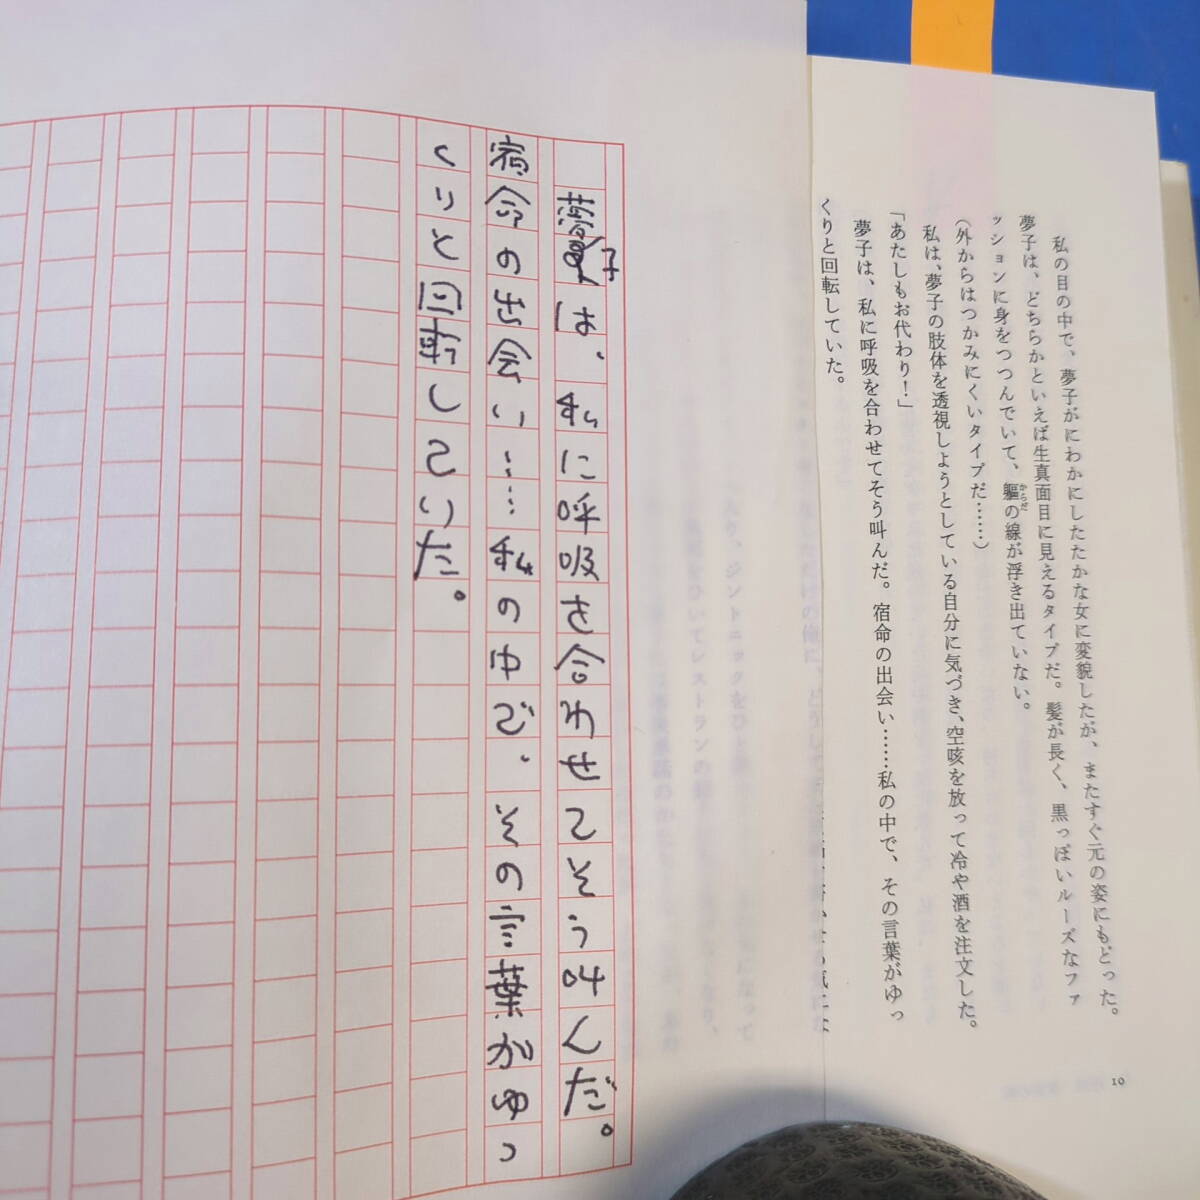 私の目の中で、夢子がにわかにしたたかな女に変貌したが、またすぐ元の姿にもどった。
夢子は、どちらかといえば生真面目に見えるタイプだ。髪が長く、黒っぽいルーズなファ
ッションに身をつつんでいて、軀からだの線が浮き出ていない。
(外からはつかみにくいタイプだ……)
私は、夢子の肢体を透視しようとしている自分に気づき、空咳を放って冷や酒を注文した。
「あたしもお代わり!」
夢子は、私に呼吸を合わせてそう叫んだ。宿命の出会い……私の中で、その言葉がゆっ
くりと回転していた。
10
夢子は、私に呼吸を合わせてそう叫んだ。
宿命の出会い……私の中で、その言葉がゆっ
くりと回転していた。